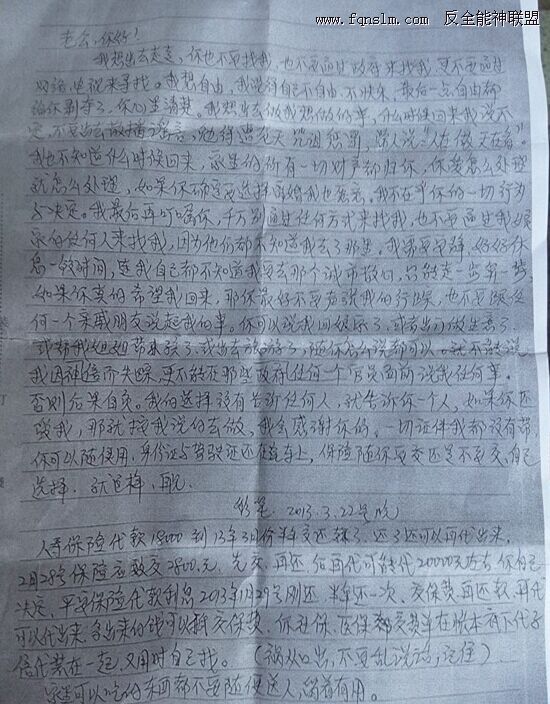 www.fqnslm.com 反全能神联盟
老公:你好!
我想出去走走,你也不要找我,也不要通过政府来找我,更不要通过
网络电视来寻找。我想自由,我觉得自己不自由不快乐,最后一点自由都
给你剥夺了,你心里清楚。我想出去做我想做的事,什么时候回来我说不
定,不要说去做播谣言,免得造天咒诅惩罚,常人说“人在做天在看”
我也不知道什么时候回来,家里的所有一切财产都归你,你爱怎么处理
就怎么处理,如果你确定要选择离婚我也愿意。我不在乎你的一切行为
与决定。我最后再叮嘱你,千万别通过任何方式来找我,也不要通过我娘
家的任何人来找我,因为他们都不知道我去了那里。我需要安静,好好休
息一段时间,连我自己都不知道我要去那个城市散心,只能走一步算一步
如果你真的希望我回来,那你最好不要声张我的行踪,也不要跟任
何一个亲戚朋友说起我的事。你可以说我回娘家了,或者出门做生意了,
或帮我姐姐带孩子了,或出去旅游了,随你怎么说都可以。就不能说
我因神信而失踪,更不能在那些政府任何一个官员面前说我任何事。
否则后果自负。我的选择没有告诉任何人,就告诉你一个人,如果你还
爱我,那就按我说的去做,我会感谢你的。一切证件我都没有带,
你可以随便用,身份证与驾驶证还在车上,保险随你要交还是不要交,自己
选择。就这样,再见
2013.3.22号晚
人寿保险代款18000到13年3月份半年交还钱了,还了还可以再代出来,
2月28号保险应致交3800元,先交,再还,后再代可能代20000元左右你自己
决定,平安保险代款利息2013年1月29号刚还,半年还一次,交保费再还款,再代
可以代出来,多出来的钱可以再交保费,你社保,医保都交费单在账本底下代子
信代装在一起,又用时自己找。(祸从口出,不要乱说话,记住)
家里可以吃的东西都不要随便送人,留着有用。